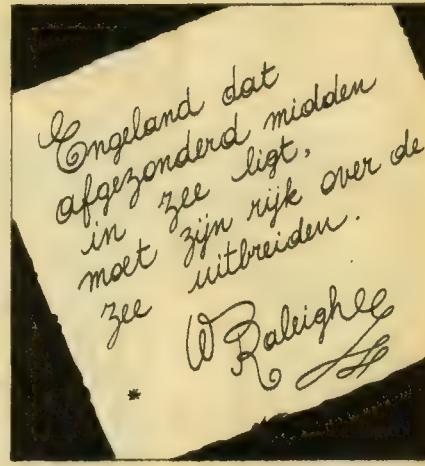 Engeland dat
afgezonderd midden
in zee ligt,
moet zijn rijk over de
zee uitbreiden.
W Raleigh
*